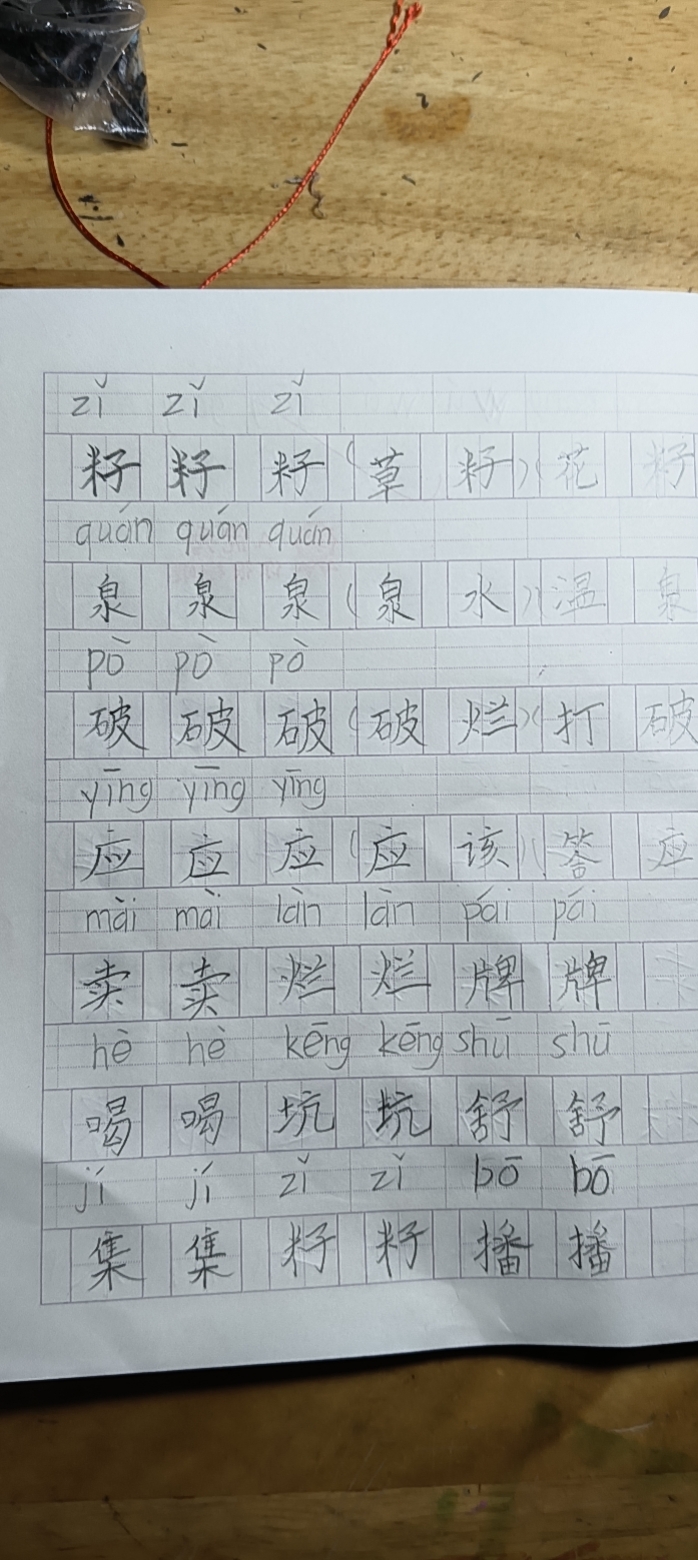 zǐ zǐ zǐ
籽 籽 籽 (草 籽)(花 籽
quán quán quán
泉 泉 泉 (泉 水)(温 泉
pò pò pò
破 破 破 (破 烂)(打 破
yīng yīng yīng
应 应 应 (应 该)(答 应
mài mài làn làn pái pái
卖 卖 烂 烂 牌 牌
hè hè kēng kēng shū shū
喝 喝 坑 坑 舒 舒
jí jí zǐ zǐ bō bō
集 集 籽 籽 播 播